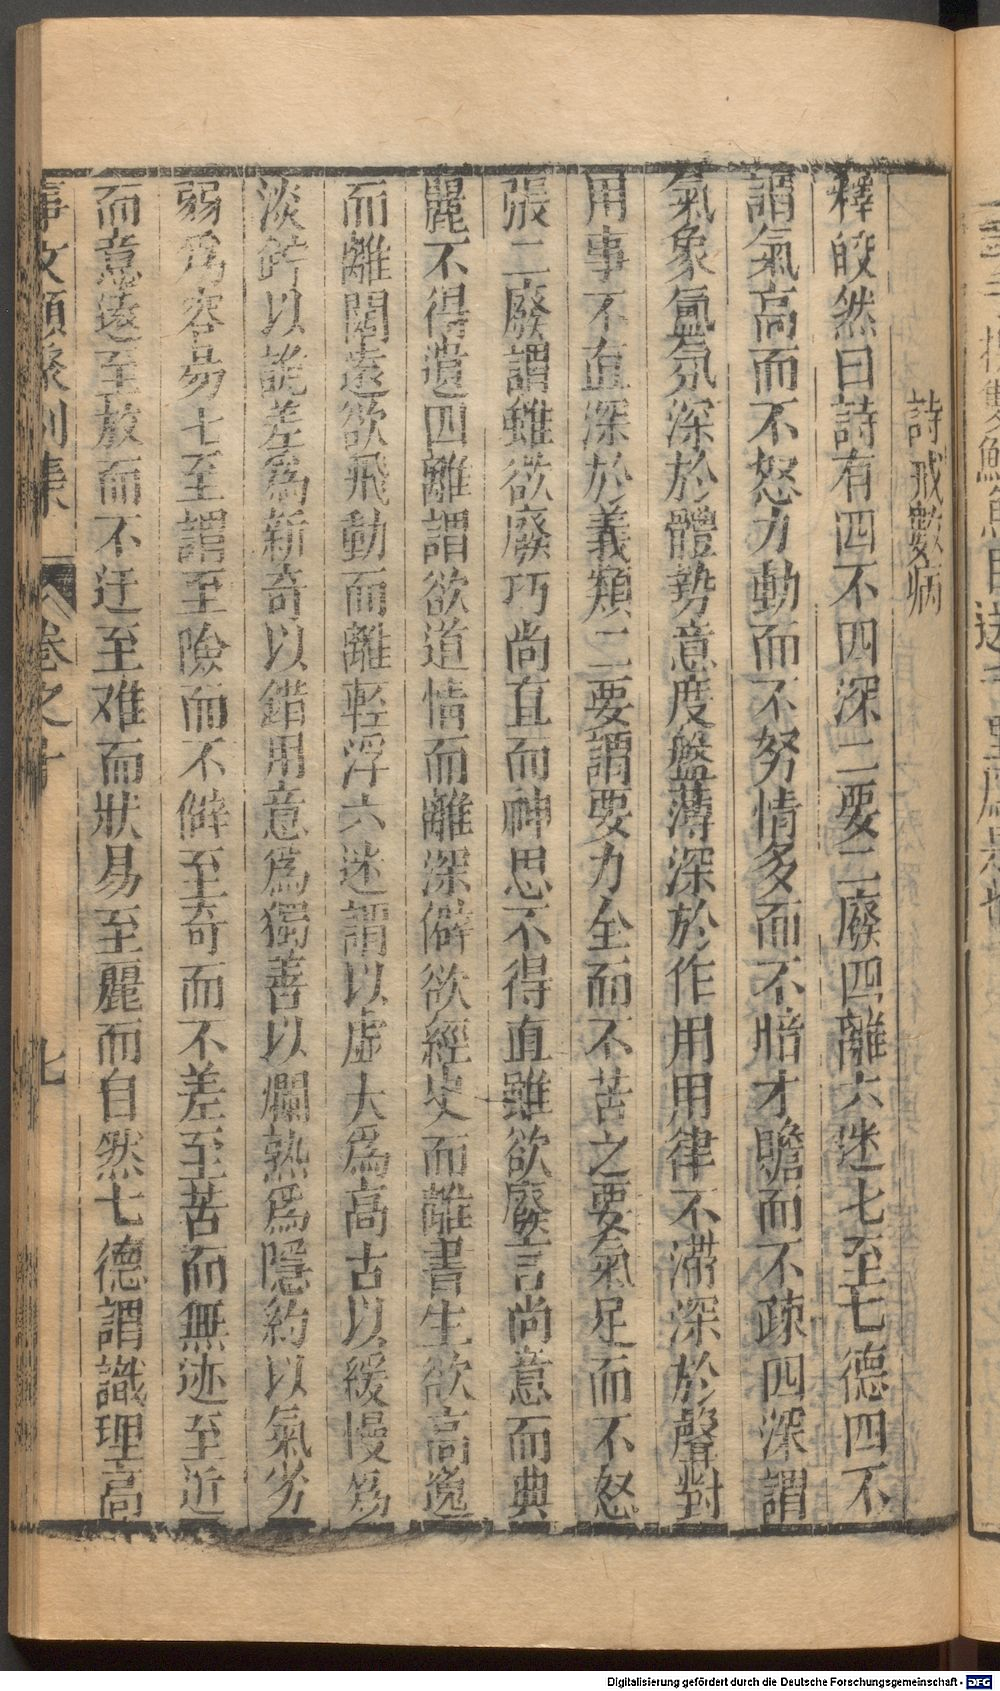 詩戒數病
釋皎然曰詩有四不四深二要二廢四離六迷七至七德四不
謂氣高而不怒力動而不努情多而不暗才贍而不疎四深謂
氣象氳氛深於體勢意度盤薄深於作用用律不滯深於聲對
用事不直深於義類二要謂要力全而不苦之要氣足而不怒
張二廢謂雖欲廢巧尚直而神思不得直雖欲廢言尚意而典
麗不得遺四離謂欲道情而離深僻欲經史而離書生欲高逸
而離闊遠欲飛動而離輕浮六迷謂以虛大爲高古以緩慢爲
淡竚以詭差爲新奇以錯用意爲獨善以爛熟爲隱約以氣劣
弱爲容易七至謂至險而不僻至奇而不差至苦而無迹至近
而意遠至放而不迂至难而狀易至麗而自然七德謂識理高
事文類聚別集 卷之十 七
Digitalisierung gefördert durch die Deutsche Forschungsgemeinschaft - DFG